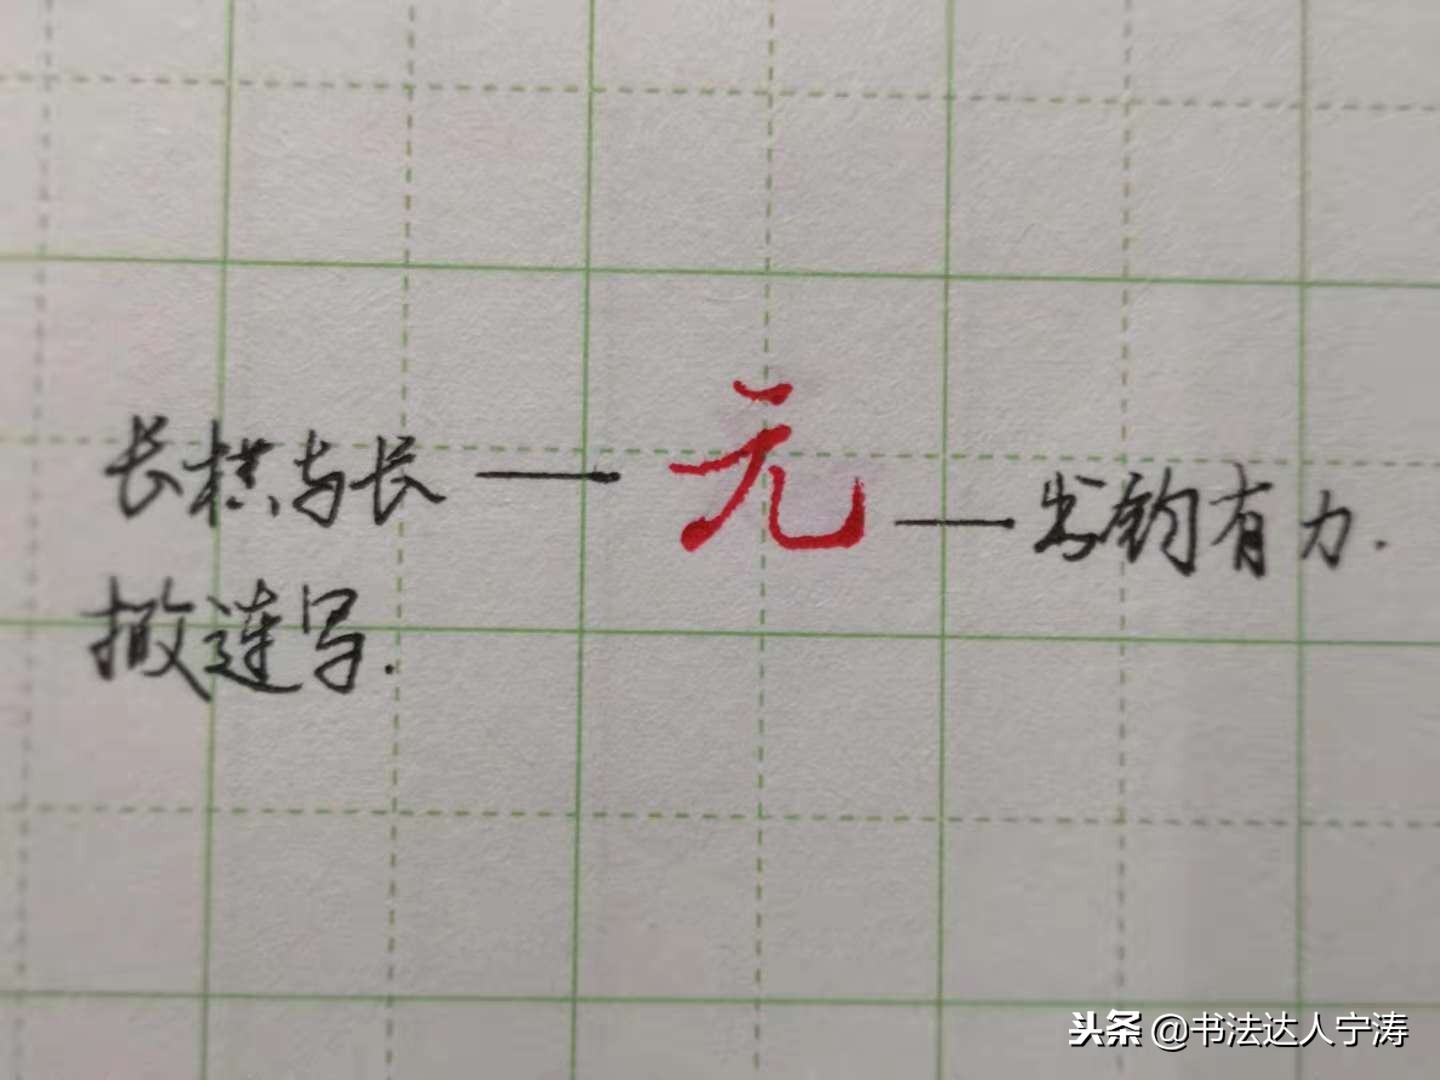 长横与长
撇连写.
元
出钩有力.
头条 @书法达人宁涛